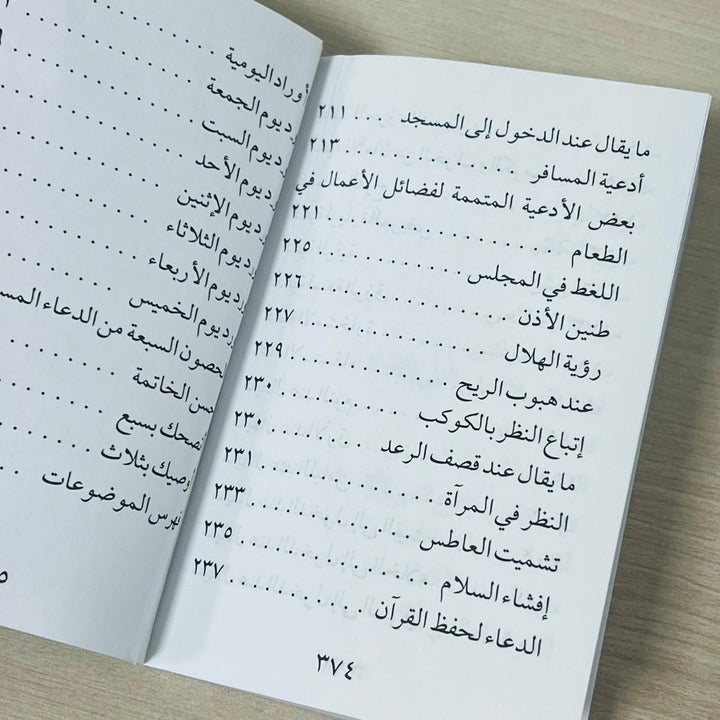 ما يقال عند الدخول إلى المسجد . . . ٢١١
أدعية المسافر . . . . . . . . . . . . ٢١٣
بعض الأدعية المتممة لفضائل الأعمال في
الطعام . . . . . . . . . . . . . . . . . ٢٢١
اللغط في المجلس . . . . . . . . . . . . ٢٢٥
طنين الأذن . . . . . . . . . . . . . . ٢٢٦
رؤية الهلال . . . . . . . . . . . . . . ٢٢٧
عند هبوب الريح . . . . . . . . . . . . ٢٢٩
إتباع النظر بالكوكب . . . . . . . . . ٢٣٠
ما يقال عند قصف الرعد . . . . . . . . ٢٣٠
النظر في المرآة . . . . . . . . . . . . . ٢٣١
تشميت العاطس . . . . . . . . . . . . ٢٣٣
إفشاء السلام . . . . . . . . . . . . . ٢٣٥
الدعاء لحفظ القرآن . . . . . . . . . . ٢٣٧
٣٧٤
أوراد اليومية
يوم الجمعة
يوم السبت
يوم الأحد
يوم الإثنين
يوم الثلاثاء
يوم الأربعاء
يوم الخميس
السبعة من الدعاء
الخاتمة
بسبع
بثلاث
فهرس الموضوعات